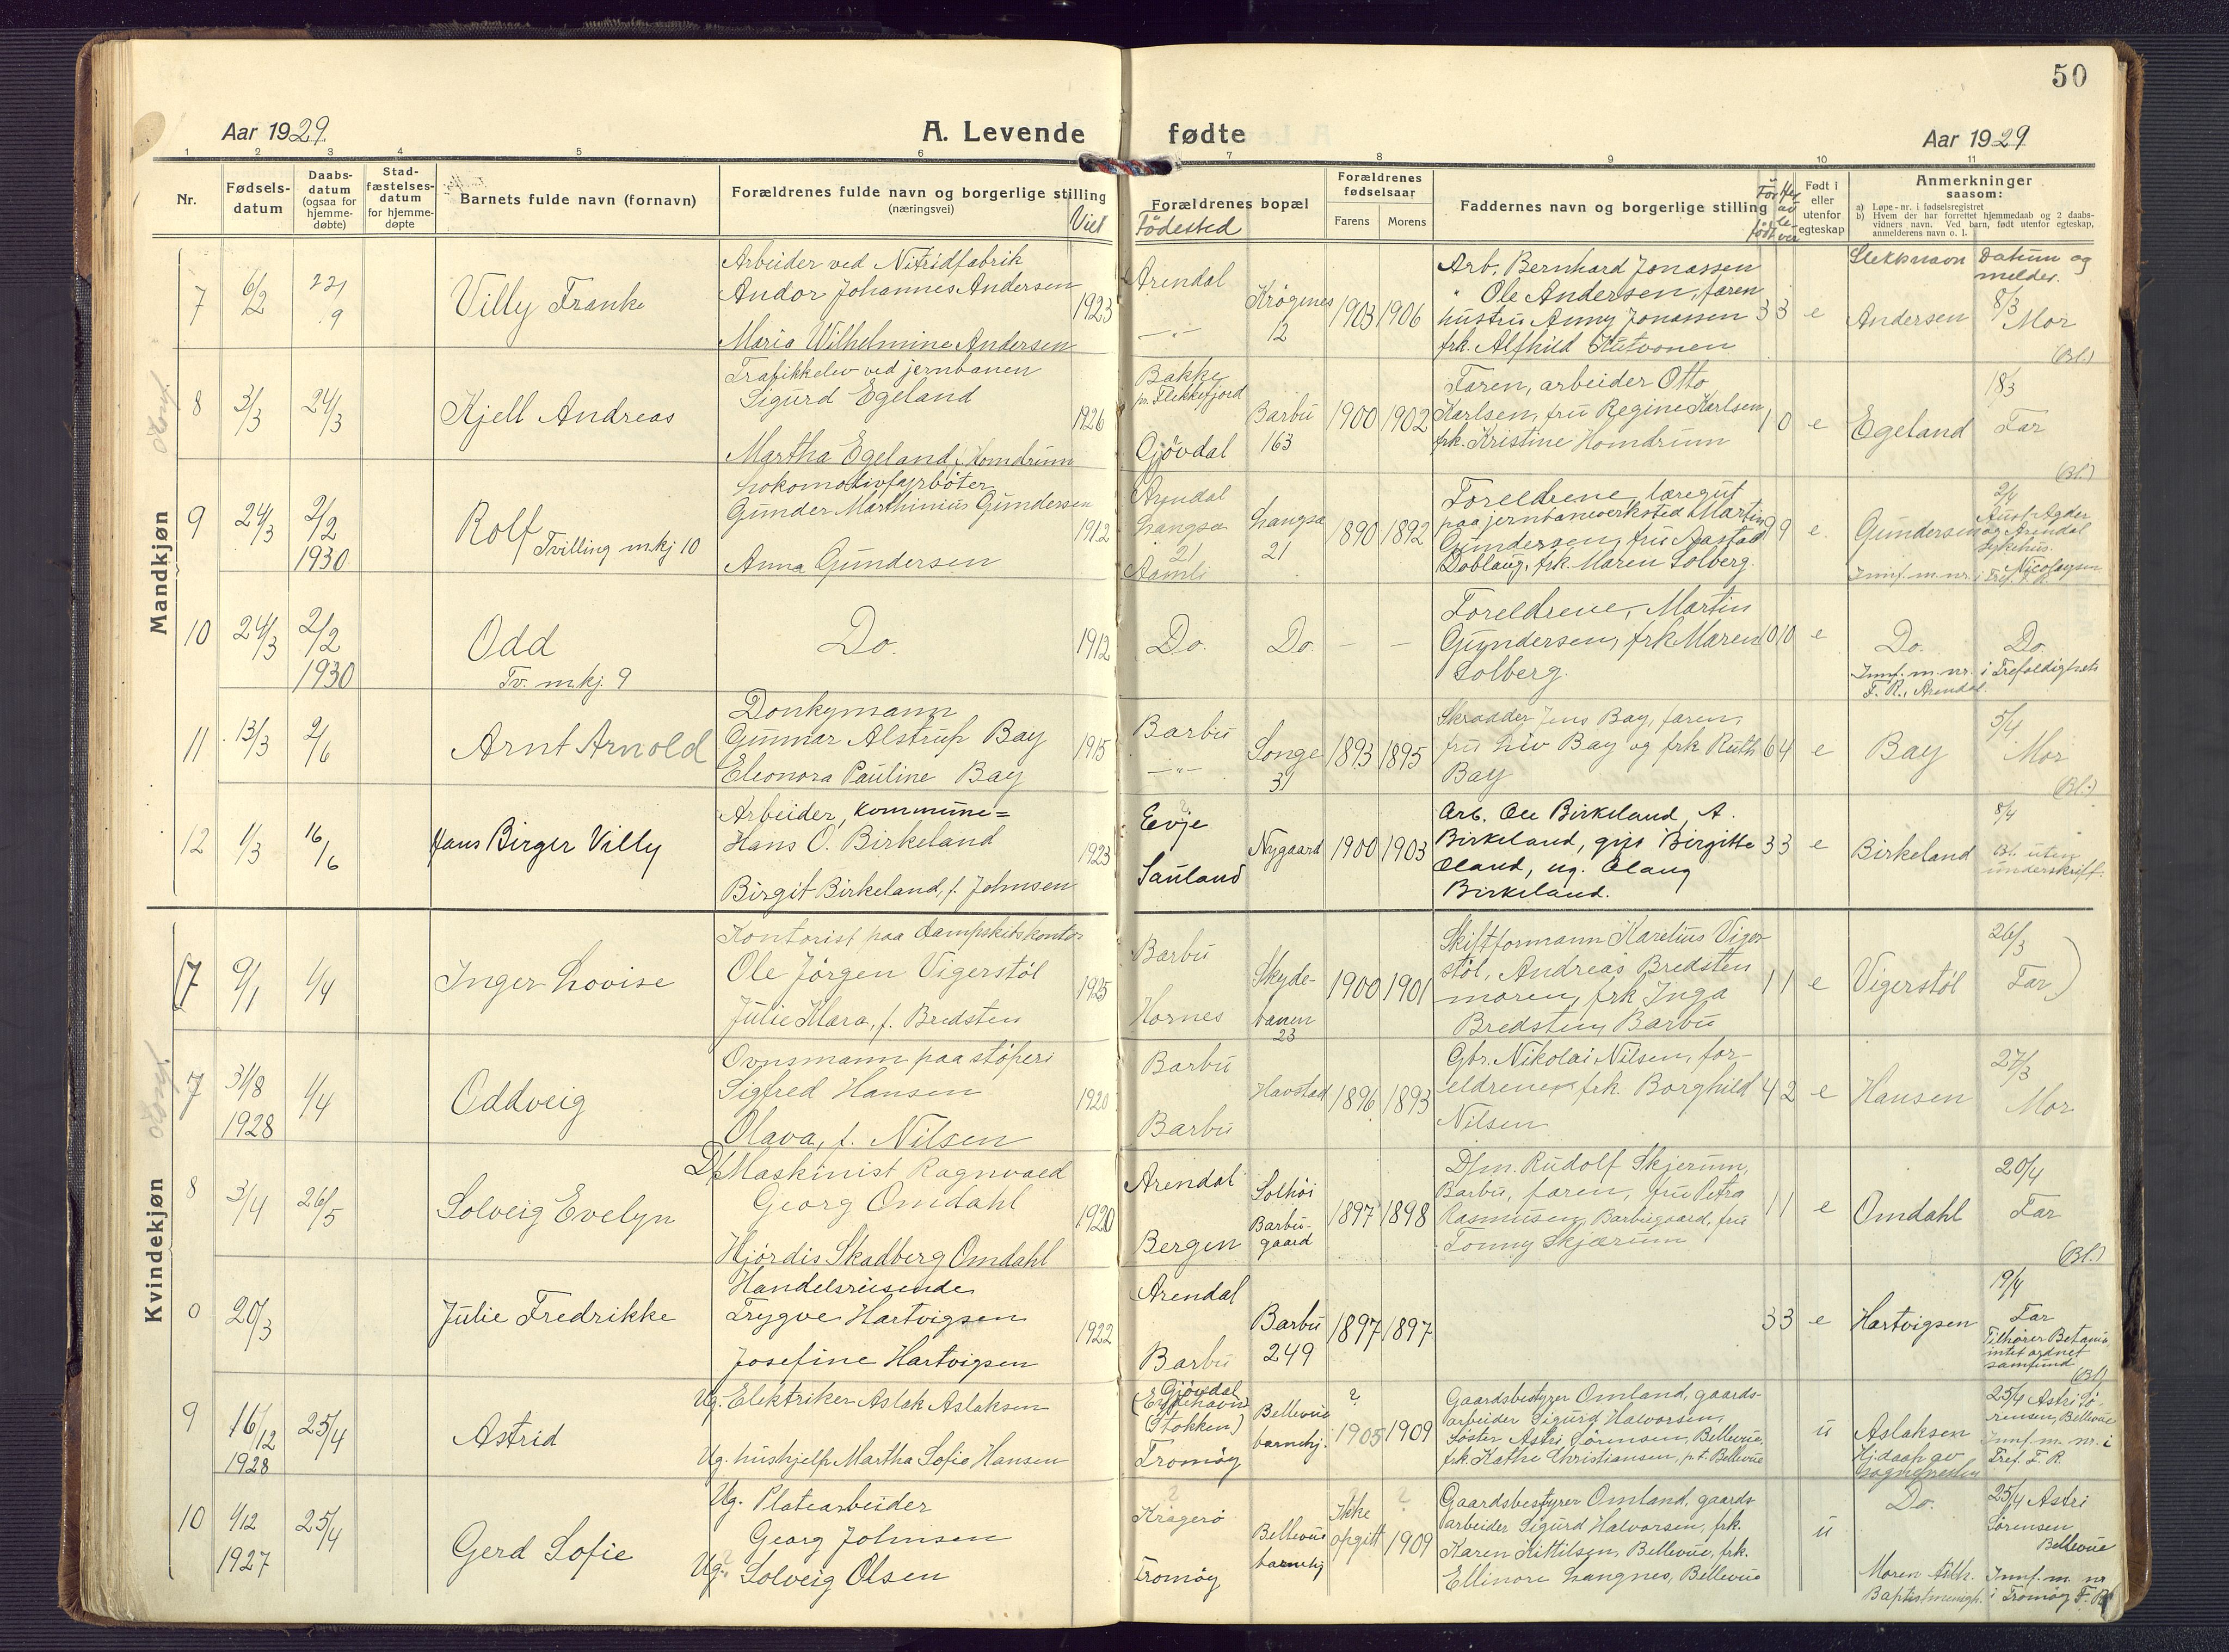 50
Aar 1929.
A. Levende fødte
Aar 1929
1 2 3 4 5 6 7 8 9 10 11
Nr.
Fødsels-
datum
Daabs-
datum
(ogsaa for
hjemme-
døbte)
Stad-
fæstelses-
datum
for hjemme-
døpte
Barnets fulde navn (fornavn)
Forældrenes fulde navn og borgerlige stilling
(næringsvei)
Viet
Forældrenes bopæl
Fødested
Forældrenes
fødselsaar
Farens
Morens
Faddernes navn og borgerlige stilling
Født i
eller
utenfor
egteskap
Anmerkninger
saasom:
a) Løpe-nr. i fødselsregistret
b) Hvem der har forrettet hjemmedaab og 2 daabs-
vidners navn. Ved barn, født utenfor egteskap,
anmelderens navn o. l.
Slektsnavn
Datum og
melder.
Mandkjøn
7
6/2
Villy Frank
Arbeider ved Nitridfabrik
Andor Johannes Andersen
Maria Wilhelmine Andersen
1923
Arendal
—"—
Krøgenes
12
1903 1906
Arb. Bernhard Jonassen
" Ole Andersen, faren
hustru Anny Jonassen
frk. Alfhild
3 3 e
Andersen
8/3
Mor
(Bl.)
8
3/3
24/3
Kjell Andreas
Trafikkelev ved jernbanen
Sigurd Egeland
Martha Egeland, f. Homdrum
1926
Bakke
pr. Flekkefjord
Gjøvdal
Barbu
163
1900 1902
Faren, arbeider Otto
Karlsen, fru Regine Karlsen,
frk. Kristine Homdrum
1 0 e
Egeland
18/3
Far
(Bl.)
9
24/3
2/2
1930
Rolf
Tvilling m.kj 10
Lokomotivfyrbøter
Gunder Marthinius Gundersen
Anna Gundersen
1912
Arendal
Langsæ
21
Aamli
Langsæ
21
1890 1892
Foreldrene, læregut
paa jernbaneverksted Martin
Gundersen, fru Aastad
Doblaug, frk. Maren Solberg.
9 9 e.
Gundersen
2/4
Aust-Agder
og Arendal
sykehus.
Nicolaysen
Innf. m. nr. i Tref. F. R.
10
24/3
2/2
1930
Odd
Tv. m.kj. 9
Do.
1912
Do. Do. — —
Foreldrene, Martin
Gundersen, frk Maren
Solberg.
10 10 e
Do. Do.
Innf. m. nr. i Trefoldighets
F. R., Arendal.
11
13/3
2/6
Arnt Arnold
Donkymann
Gunnar Alstrup Bay
Eleonora Pauline Bay
1915
Barbu
—"—
Songe
31
1893 1895
Skrædder Jens Bay, faren,
fru Liv Bay og frk Ruth
Bay
6 4 e
Bay
5/4
Mor
(Bl.)
12
1/3
16/6
Hans Birger Villy
Arbeider, kommune=
Hans O. Birkeland
Birgit Birkeland, f. Johnsen
1923
Evje
Sauland
Nygaard
1900 1903
Arb. Ole Birkeland, A.
Birkeland, gift Birgitte
Oland, ug. Olaug
Birkeland.
3 3 e
Birkeland
8/4
Bl. uten
underskrift.
Kvindekjøn
(7
9/1
1/4
Inger Lovise
Kontorist paa dampskibskontor
Ole Jørgen Vigerstøl
Julie Klara, f. Bredsten
1925
Barbu
Hornes
Skyde-
banen
23
1900 1901
Skiftformann Karelius Viger-
støl, Andreas Bredsten
moren, frk Inga
Bredsten, Barbu
1 1 e
Vigerstøl
26/3
Far)
7
31/8
1928
1/4
Oddveig
Ovnsmann paa støperi
Sigfred Hansen
Olava, f. Nilsen
1920
Barbu
Barbu
Havstad
1896 1893
Gbr. Nikolai Nilsen, for-
eldrene, frk. Borghild
Nilsen
4 2 e
Hansen
27/3
Mor
8
3/4
26/5
Solveig Evelyn
D/Maskinist Ragnvald
Georg Omdahl
Hjørdis Skadberg Omdahl
1920
Arendal
Bergen
Solhøi
Barbu-
gaard
1897 1898
D/m. Rudolf Skjerum,
Barbu, faren, fru Petra
Rasmussen, Barbugaard, fru
Tonny Skjærum
1 1 e
Omdahl
20/4
Far
(Bl.)
0
20/3
Julie Fredrikke
Handelsreisende
Trygve Hartvigsen
Josefine Hartvigsen
1922
Arendal
Barbu
Barbu
249
1897 1897
3 3 e
Hartvigsen
19/4
Far
Tilhører Betania,
intet ordnet
samfund
(Bl)
9
16/12
1928
25/4
Astrid
Ug. Elektriker Aslak Aslaksen
Ug. hushjelp Martha Sofie Hansen
Gjøvdal
(Eydehavn)
(Stokken)
Tromøy
Bellevue
barnehj.
?
1905 1909
Gaardsbestyrer Omland, gaards-
arbeider Sigurd Halvorsen,
søster Astri Sørensen, Bellevue,
frk. Käthe Christiansen, p.t. Bellevue
u
Aslaksen
Hj.daap av
sognepresten
25/4 Astri Sø-
rensen, Bellevue
Innf. m. nr. i
Tref. F. R.
10
4/12
1927
25/4
Gerd Sofie
Ug. Platearbeider
Georg Johnsen
Ug. Solveig Olsen
?
Kragerø
Tromøy
Bellevue
barnehj
Ikke
opgitt
?
1909
Gaardsbestyrer Omland, gaards
arbeider Sigurd Halvorsen, frk.
Karen Kittilsen, Bellevue, frk.
Ellinore Langnes, Bellevue
u
Do.
25/4 Astri
Sørensen
Bellevue
Moren tilh.
Baptistmenigh.
Innf. m. nr
i Tromøy F. R.